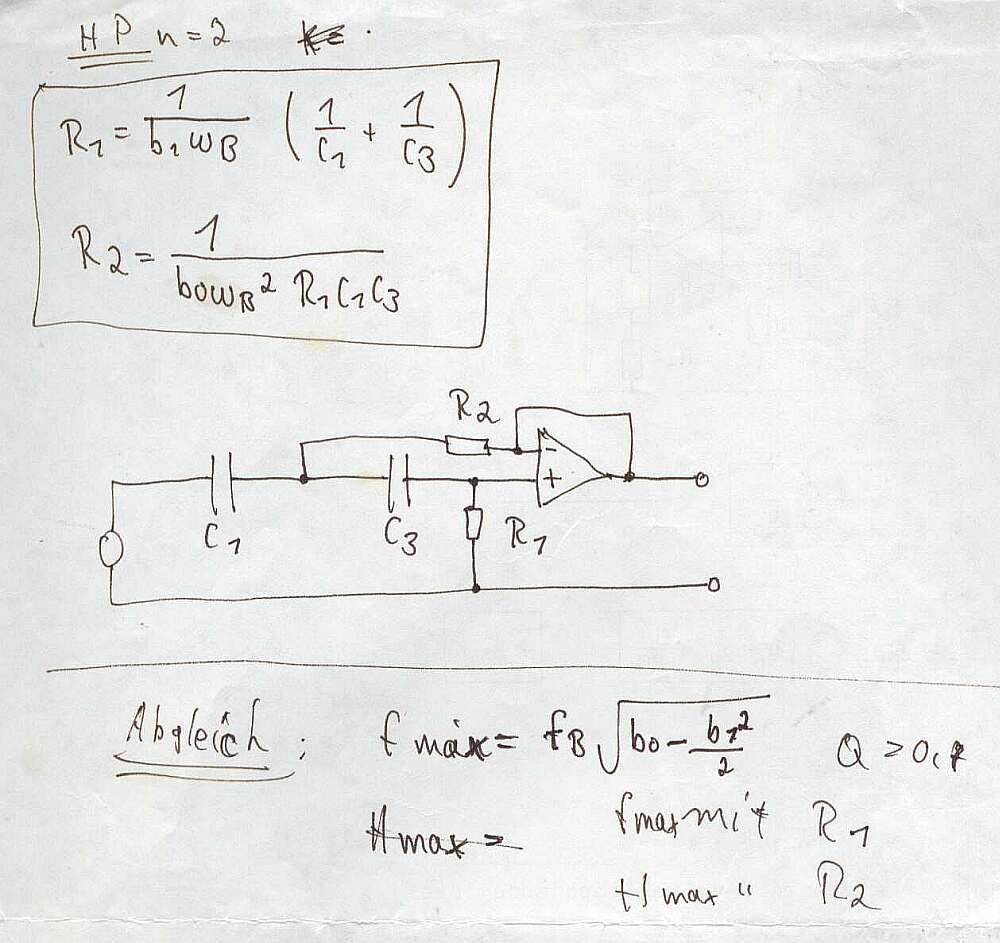 HP n=2
R1 = 1/(b1 ωB) (1/C1 + 1/C3)
R2 = 1/(b0 ωB² R1 C1 C3)
R2
-
+
C1 C3 R1
Abgleich : fmax = fB √(b0 - b1²/2) Q > 0,7
Hmax = fmax mit R1
Hmax " R2